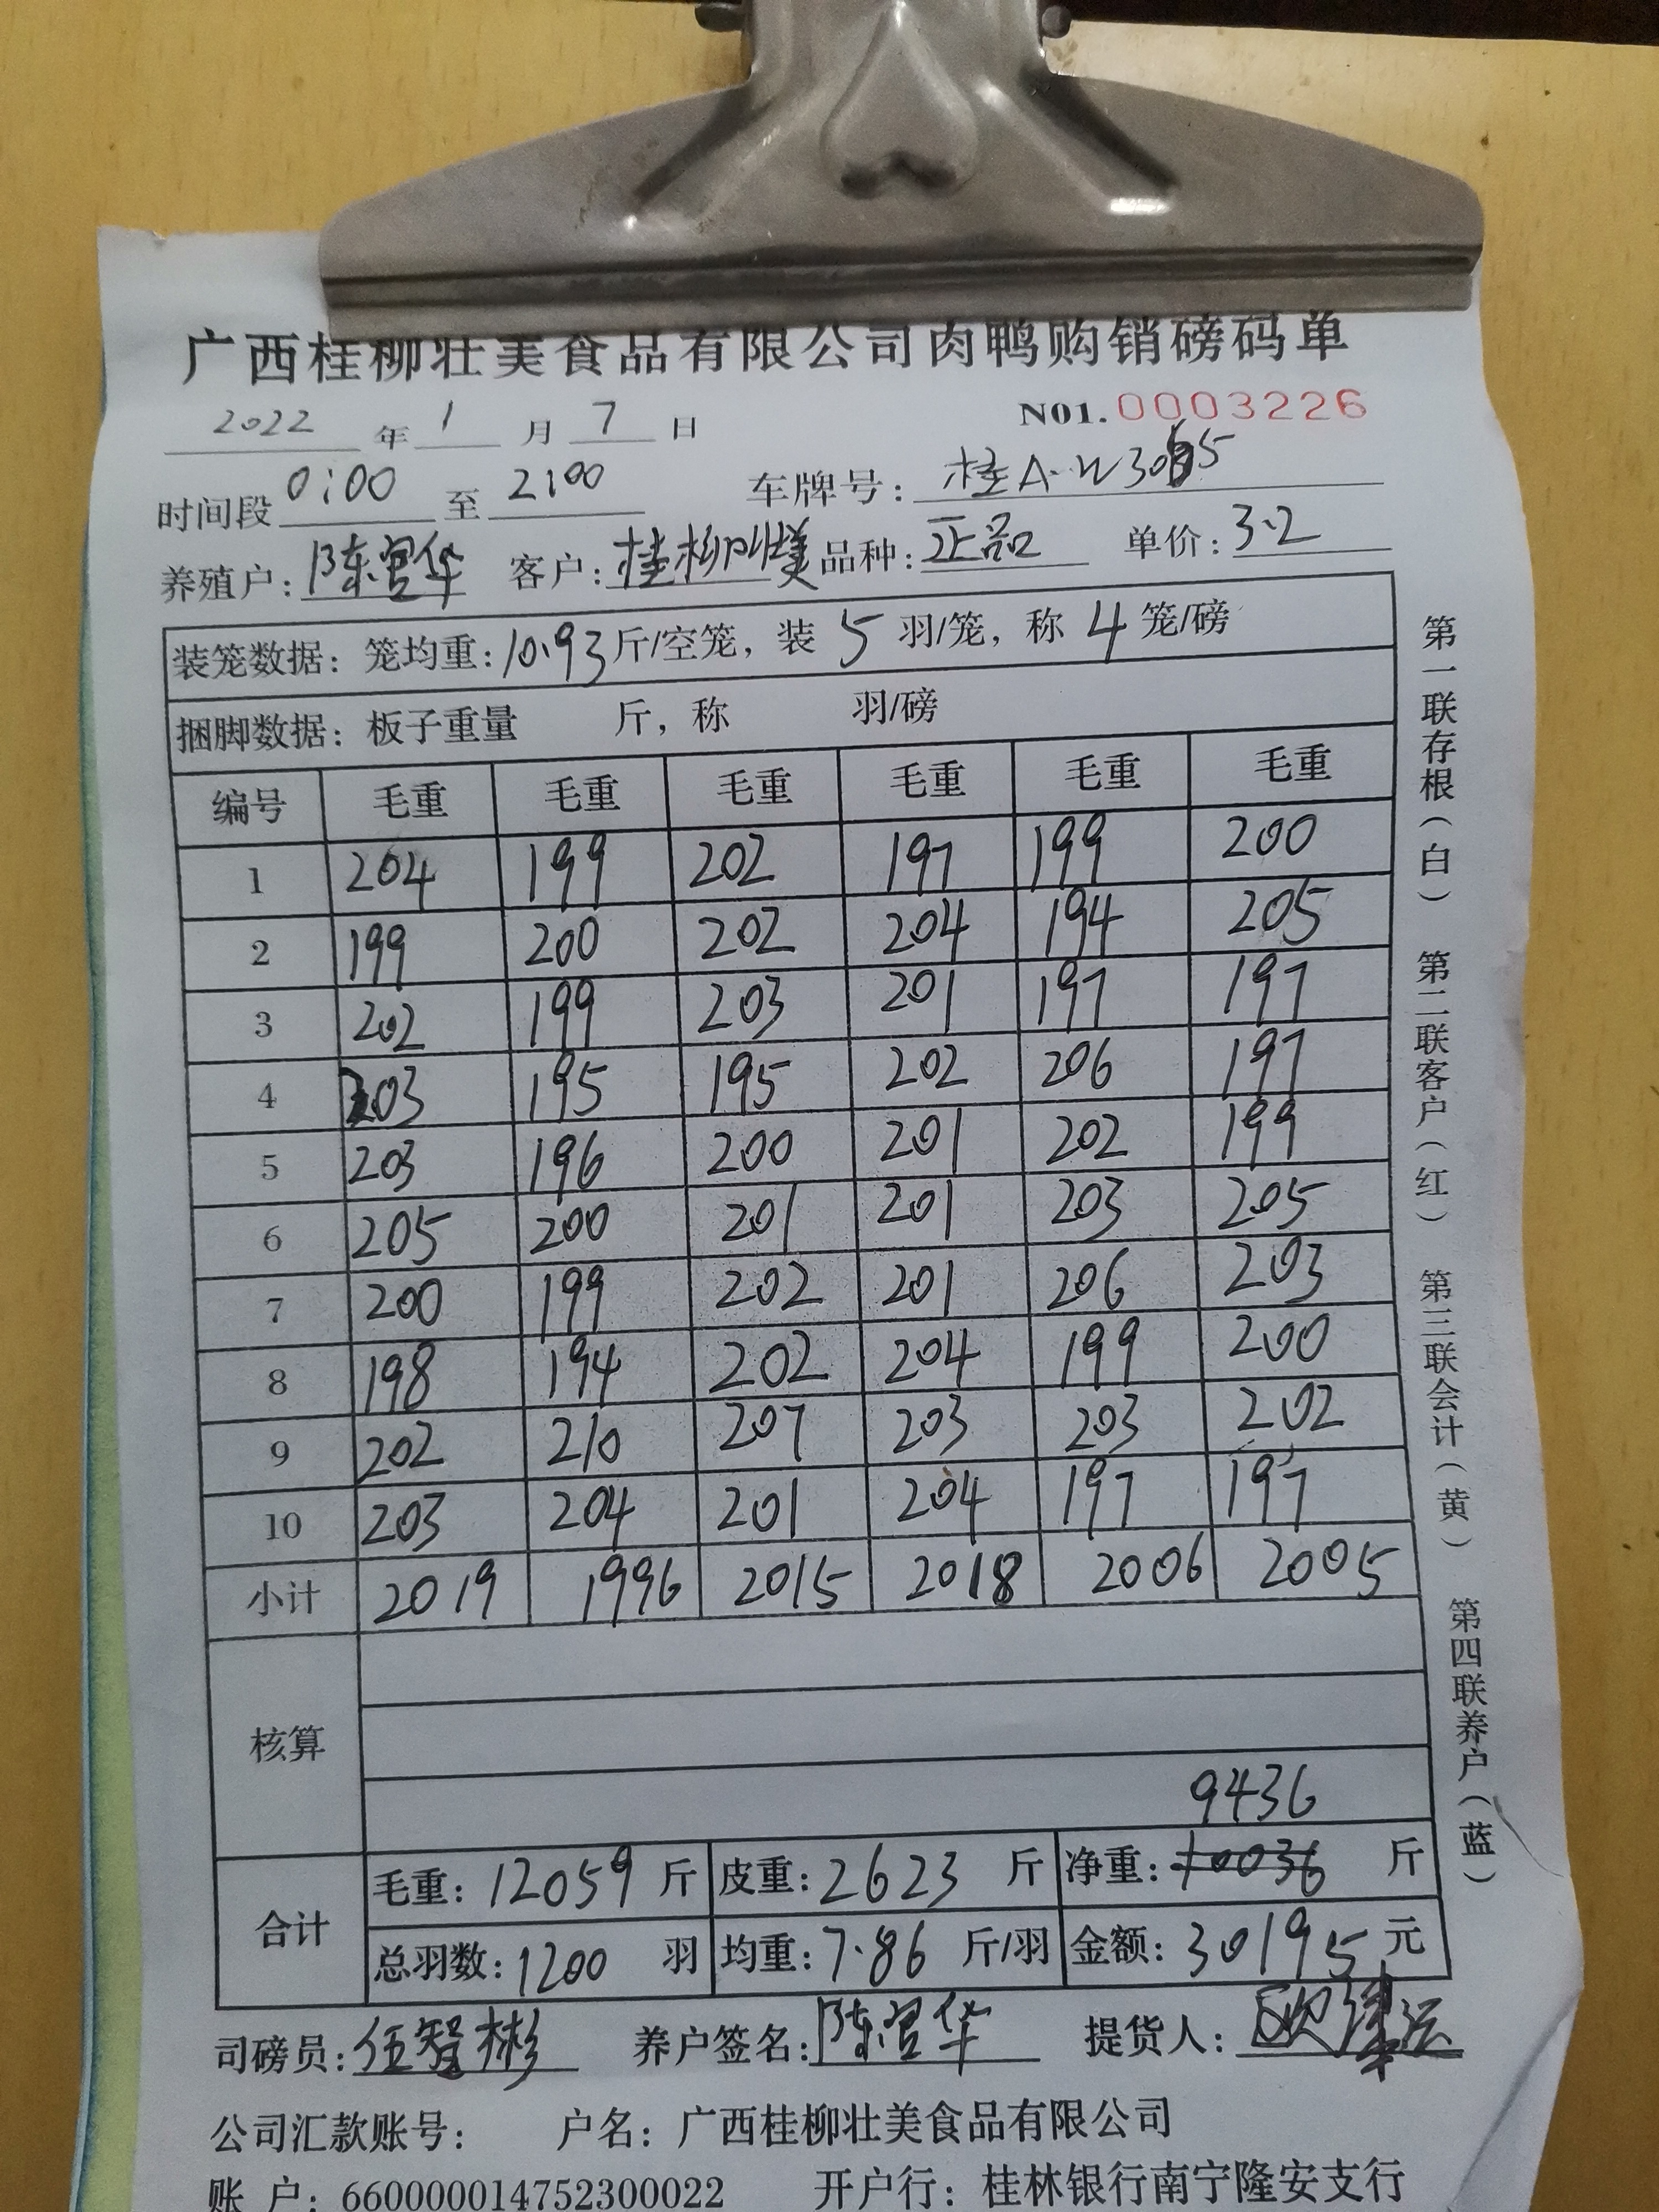 广西桂柳壮美食品有限公司肉鸭购销磅码单
2022 年 1 月 7 日 N01. 0003226
时间段 0:00 至 2:00 车牌号: 桂A·W3065
养殖户: 陈宣华 客户: 桂柳壮美 品种: 正品 单价: 3.2
装笼数据: 笼均重: 10.93 斤/空笼, 装 5 羽/笼, 称 4 笼/磅
捆脚数据: 板子重量 斤, 称 羽/磅
编号 毛重 毛重 毛重 毛重 毛重 毛重
1 204 199 202 197 199 200
2 199 200 202 204 194 205
3 202 199 203 201 197 197
4 203 195 195 202 206 197
5 203 196 200 201 202 199
6 205 200 201 201 203 205
7 200 199 202 201 206 203
8 198 194 202 204 199 200
9 202 210 207 203 203 202
10 203 204 201 204 197 197
小计 2019 1996 2015 2018 2006 2005
核算
9436
合计
毛重: 12059 斤 皮重: 2623 斤 净重: 10036 斤
总羽数: 1200 羽 均重: 7.86 斤/羽 金额: 30195 元
司磅员: 伍智彬 养户签名: 陈宣华 提货人: 欧
公司汇款账号: 户名: 广西桂柳壮美食品有限公司
账 户: 660000014752300022 开户行: 桂林银行南宁隆安支行
第一联存根(白) 第二联客户(红) 第三联会计(黄) 第四联养户(蓝)